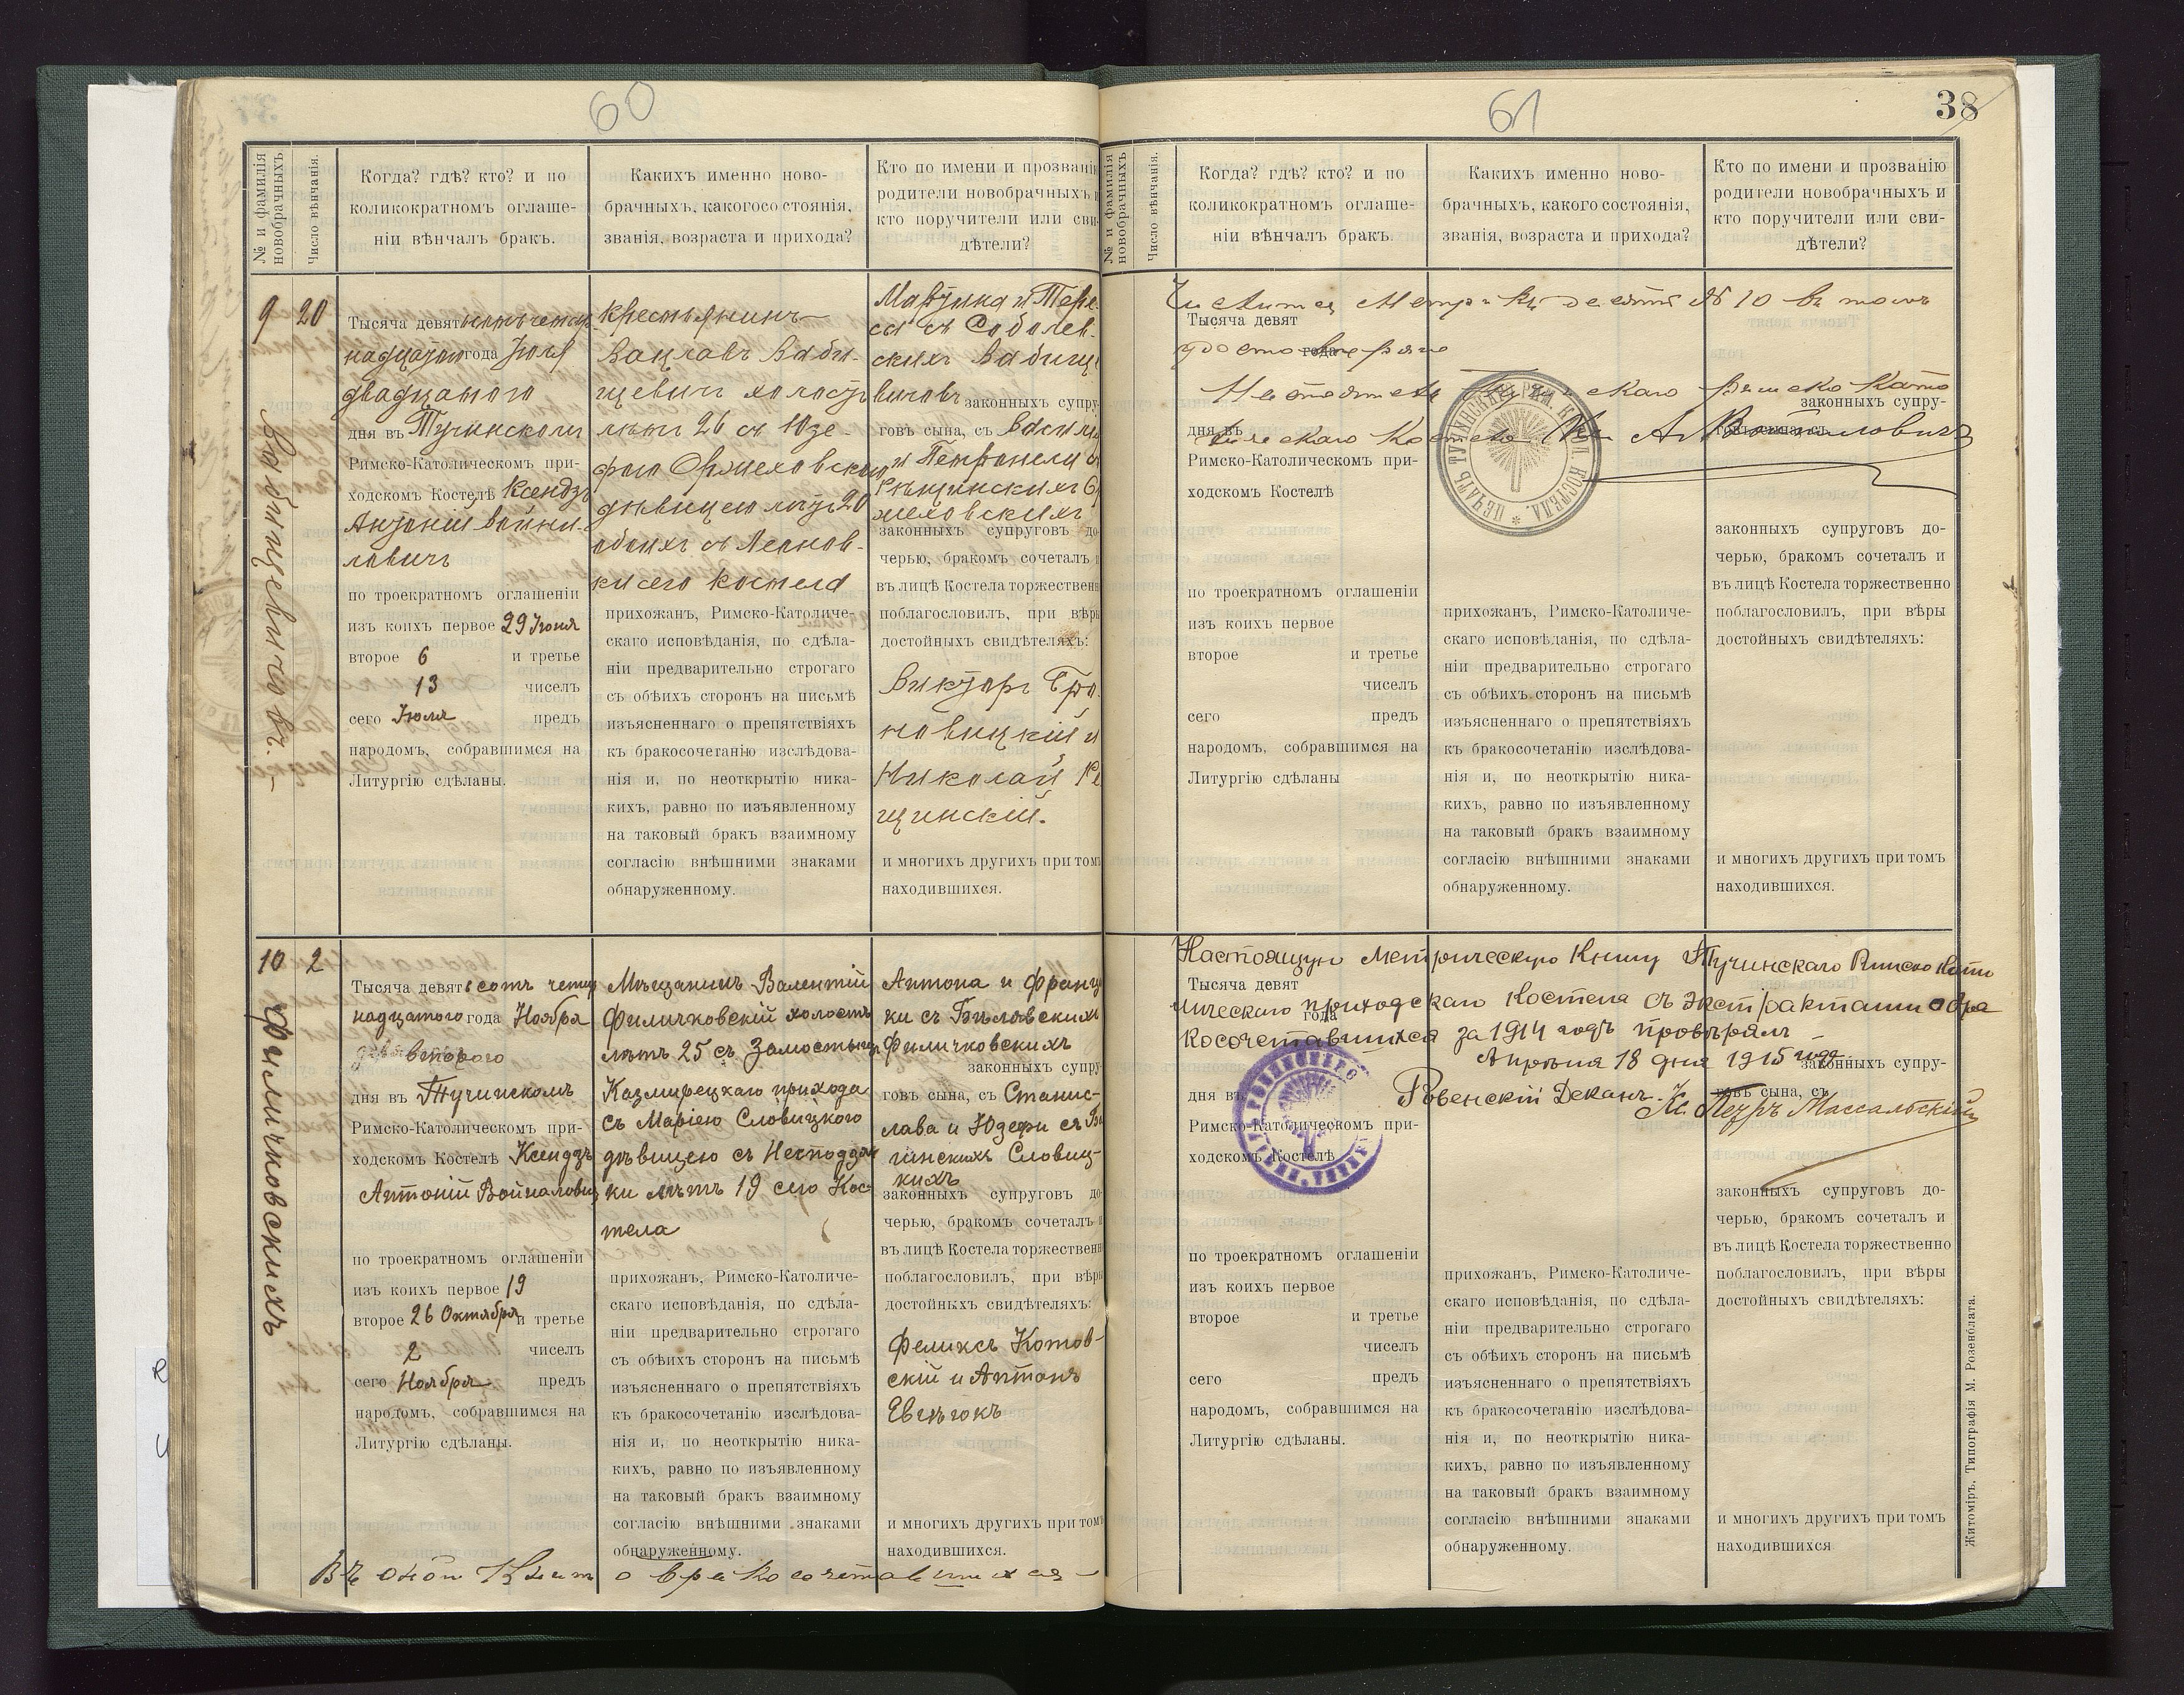 60
№ и фамилія новобрачныхъ
Число вѣнчанія.
Когда? гдѣ? кто? и по
коликократномъ оглаше-
ніи вѣнчалъ бракъ.
Какихъ именно ново-
брачныхъ, какогосо стоянія,
званія, возраста и прихода?
Кто по имени и прозванію
родители новобрачныхъ и
кто поручители или сви-
дѣтели?
9
20
Тысяча девятьсотъ четыр-
надцатого года Іюля
двадцатого
дня въ Тучинскомъ
Римско-Католическомъ при-
ходскомъ Костелѣ Ксендзъ
Антоній Война-
ловичъ
по троекратномъ оглашеніи
изъ коихъ первое 29 Іюня
второе 6 и третье
13 чиселъ
сего Іюля предъ
народомъ, собравшимся на
Литургію сдѣланы.
крестьянинъ
Вацлавъ Ваби-
щевичъ холостъ
лѣтъ 26 съ Юзе-
фою Оржеховскою
дѣвицею лѣтъ 20
обоихъ съ Леонов-
ки сего костела
прихожанъ, Римско-Католиче-
скаго исповѣданія, по сдѣла-
ніи предварительно строгаго
съ обѣихъ сторонъ на письмѣ
изъясненнаго о препятствіяхъ
къ бракосочетанію изслѣдова-
нія и, по неоткрытію ника-
кихъ, равно по изъявленному
на таковый бракъ взаимному
согласію внѣшними знаками
обнаруженному.
Мартина и Тере-
сы съ Соболев-
скихъ Вабище-
вичовъ законныхъ супру-
говъ сына, съ
и Петронели
законныхъ супруговъ до-
черью, бракомъ сочеталъ и
въ лицѣ Костела торжественно
поблагословилъ, при вѣры
достойныхъ свидѣтеляхъ:
Викторъ Тро-
новицкій и
Николай Ре-
щинскій.
и многихъ другихъ при томъ
находившихся.
10
2
Филичковскихъ
Тысяча девятьсотъ четыр
надцатого года Ноября
второго
дня въ Тучинскомъ
Римско-Католическомъ при-
ходскомъ Костелѣ Ксендзъ
Антоній Войналовичъ
по троекратномъ оглашеніи
изъ коихъ первое 19
второе 26 Октября и третье
2 чиселъ
сего Ноября предъ
народомъ, собравшимся на
Литургію сдѣланы.
Мѣщанинъ Валентій
Филичковскій холостъ
лѣтъ 25 съ Замостьищъ
Казмирецкаго прихода
съ Маріею Словицкого
дѣвицею съ Несподзян
ки лѣтъ 19 сего Кос-
тела
прихожанъ, Римско-Католиче-
скаго исповѣданія, по сдѣла-
ніи предварительно строгаго
съ обѣихъ сторонъ на письмѣ
изъясненнаго о препятствіяхъ
къ бракосочетанію изслѣдова-
нія и, по неоткрытію ника-
кихъ, равно по изъявленному
на таковый бракъ взаимному
согласію внѣшними знаками
обнаруженному.
Антона и Францыш
ки съ Бѣлявскихъ
Филичковскихъ
законныхъ супру-
говъ сына, съ Станис-
лава и Юзефы съ
Словиц-
кихъ
законныхъ супруговъ до-
черью, бракомъ сочеталъ и
въ лицѣ Костела торжественно
поблагословилъ, при вѣры
достойныхъ свидѣтеляхъ:
Феликсъ Котов-
скій и Антонъ
Евгѣюкъ
и многихъ другихъ при томъ
находившихся.
Въ оной Книгѣ о бракосочетавшихся
61
38
№ и фамилія новобрачныхъ
Число вѣнчанія.
Когда? гдѣ? кто? и по
коликократномъ оглаше-
ніи вѣнчалъ бракъ.
Какихъ именно ново-
брачныхъ, какого состоянія,
званія, возраста и прихода?
Кто по имени и прозванію
родители новобрачныхъ и
кто поручители или сви-
дѣтели?
числится Метрикъ десять № 10 въ томъ
Тысяча девят
удостовѣряю
года
Настоятель Тучинскаго Римско Като
законныхъ супру-
лическаго Костела Кс. А. Войналовичъ
дня въ
говъ сына, съ
Римско-Католическомъ при-
ходскомъ Костелѣ
ПЕЧАТЬ ТУЧИНСКАГО РИМ. КАТОЛ. КОСТЕЛА.
по троекратномъ оглашеніи
изъ коихъ первое
второе и третье
чиселъ
сего предъ
народомъ, собравшимся на
Литургію сдѣланы
прихожанъ, Римско-Католиче-
скаго исповѣданія, по сдѣла-
ніи предварительно строгаго
съ обѣихъ сторонъ на письмѣ
изъясненнаго о препятствіяхъ
къ бракосочетанію изслѣдова-
нія и, по неоткрытію ника-
кихъ, равно по изъявленному
на таковый бракъ взаимному
согласію внѣшними знаками
обнаруженному.
законныхъ супруговъ до-
черью, бракомъ сочеталъ и
въ лицѣ Костела торжественно
поблагословилъ, при вѣры
достойныхъ свидѣтеляхъ:
и многихъ другихъ при томъ
находившихся.
Настоящую Метрическую Книгу Тучинскаго Римско Като
Тысяча девят
лическаго приходскаго Костела съ экстрактами о бра
года
косочетавшихся за 1914 годъ провѣрялъ
Апрѣля 18 дня 1915 года
законныхъ супру-
Ровенскій Деканъ Кс. Петръ Массальскій
дня въ
говъ сына, съ
Римско-Католическомъ при-
ходскомъ Костелѣ
по троекратномъ оглашеніи
изъ коихъ первое
второе и третье
чиселъ
сего предъ
народомъ, собравшимся на
Литургію сдѣланы.
прихожанъ, Римско-Католиче-
скаго исповѣданія, по сдѣла-
ніи предварительно строгаго
съ обѣихъ сторонъ на письмѣ
изъясненнаго о препятствіяхъ
къ бракосочетанію изслѣдова-
нія и, по неоткрытію ника-
кихъ, равно по изъявленному
на таковый бракъ взаимному
согласію внѣшними знаками
обнаруженному.
законныхъ супруговъ до-
черью, бракомъ сочеталъ и
въ лицѣ Костела торжественно
поблагословилъ, при вѣры
достойныхъ свидѣтеляхъ:
и многихъ другихъ при томъ
находившихся
Житоміръ. Типографія М. Розенблата.